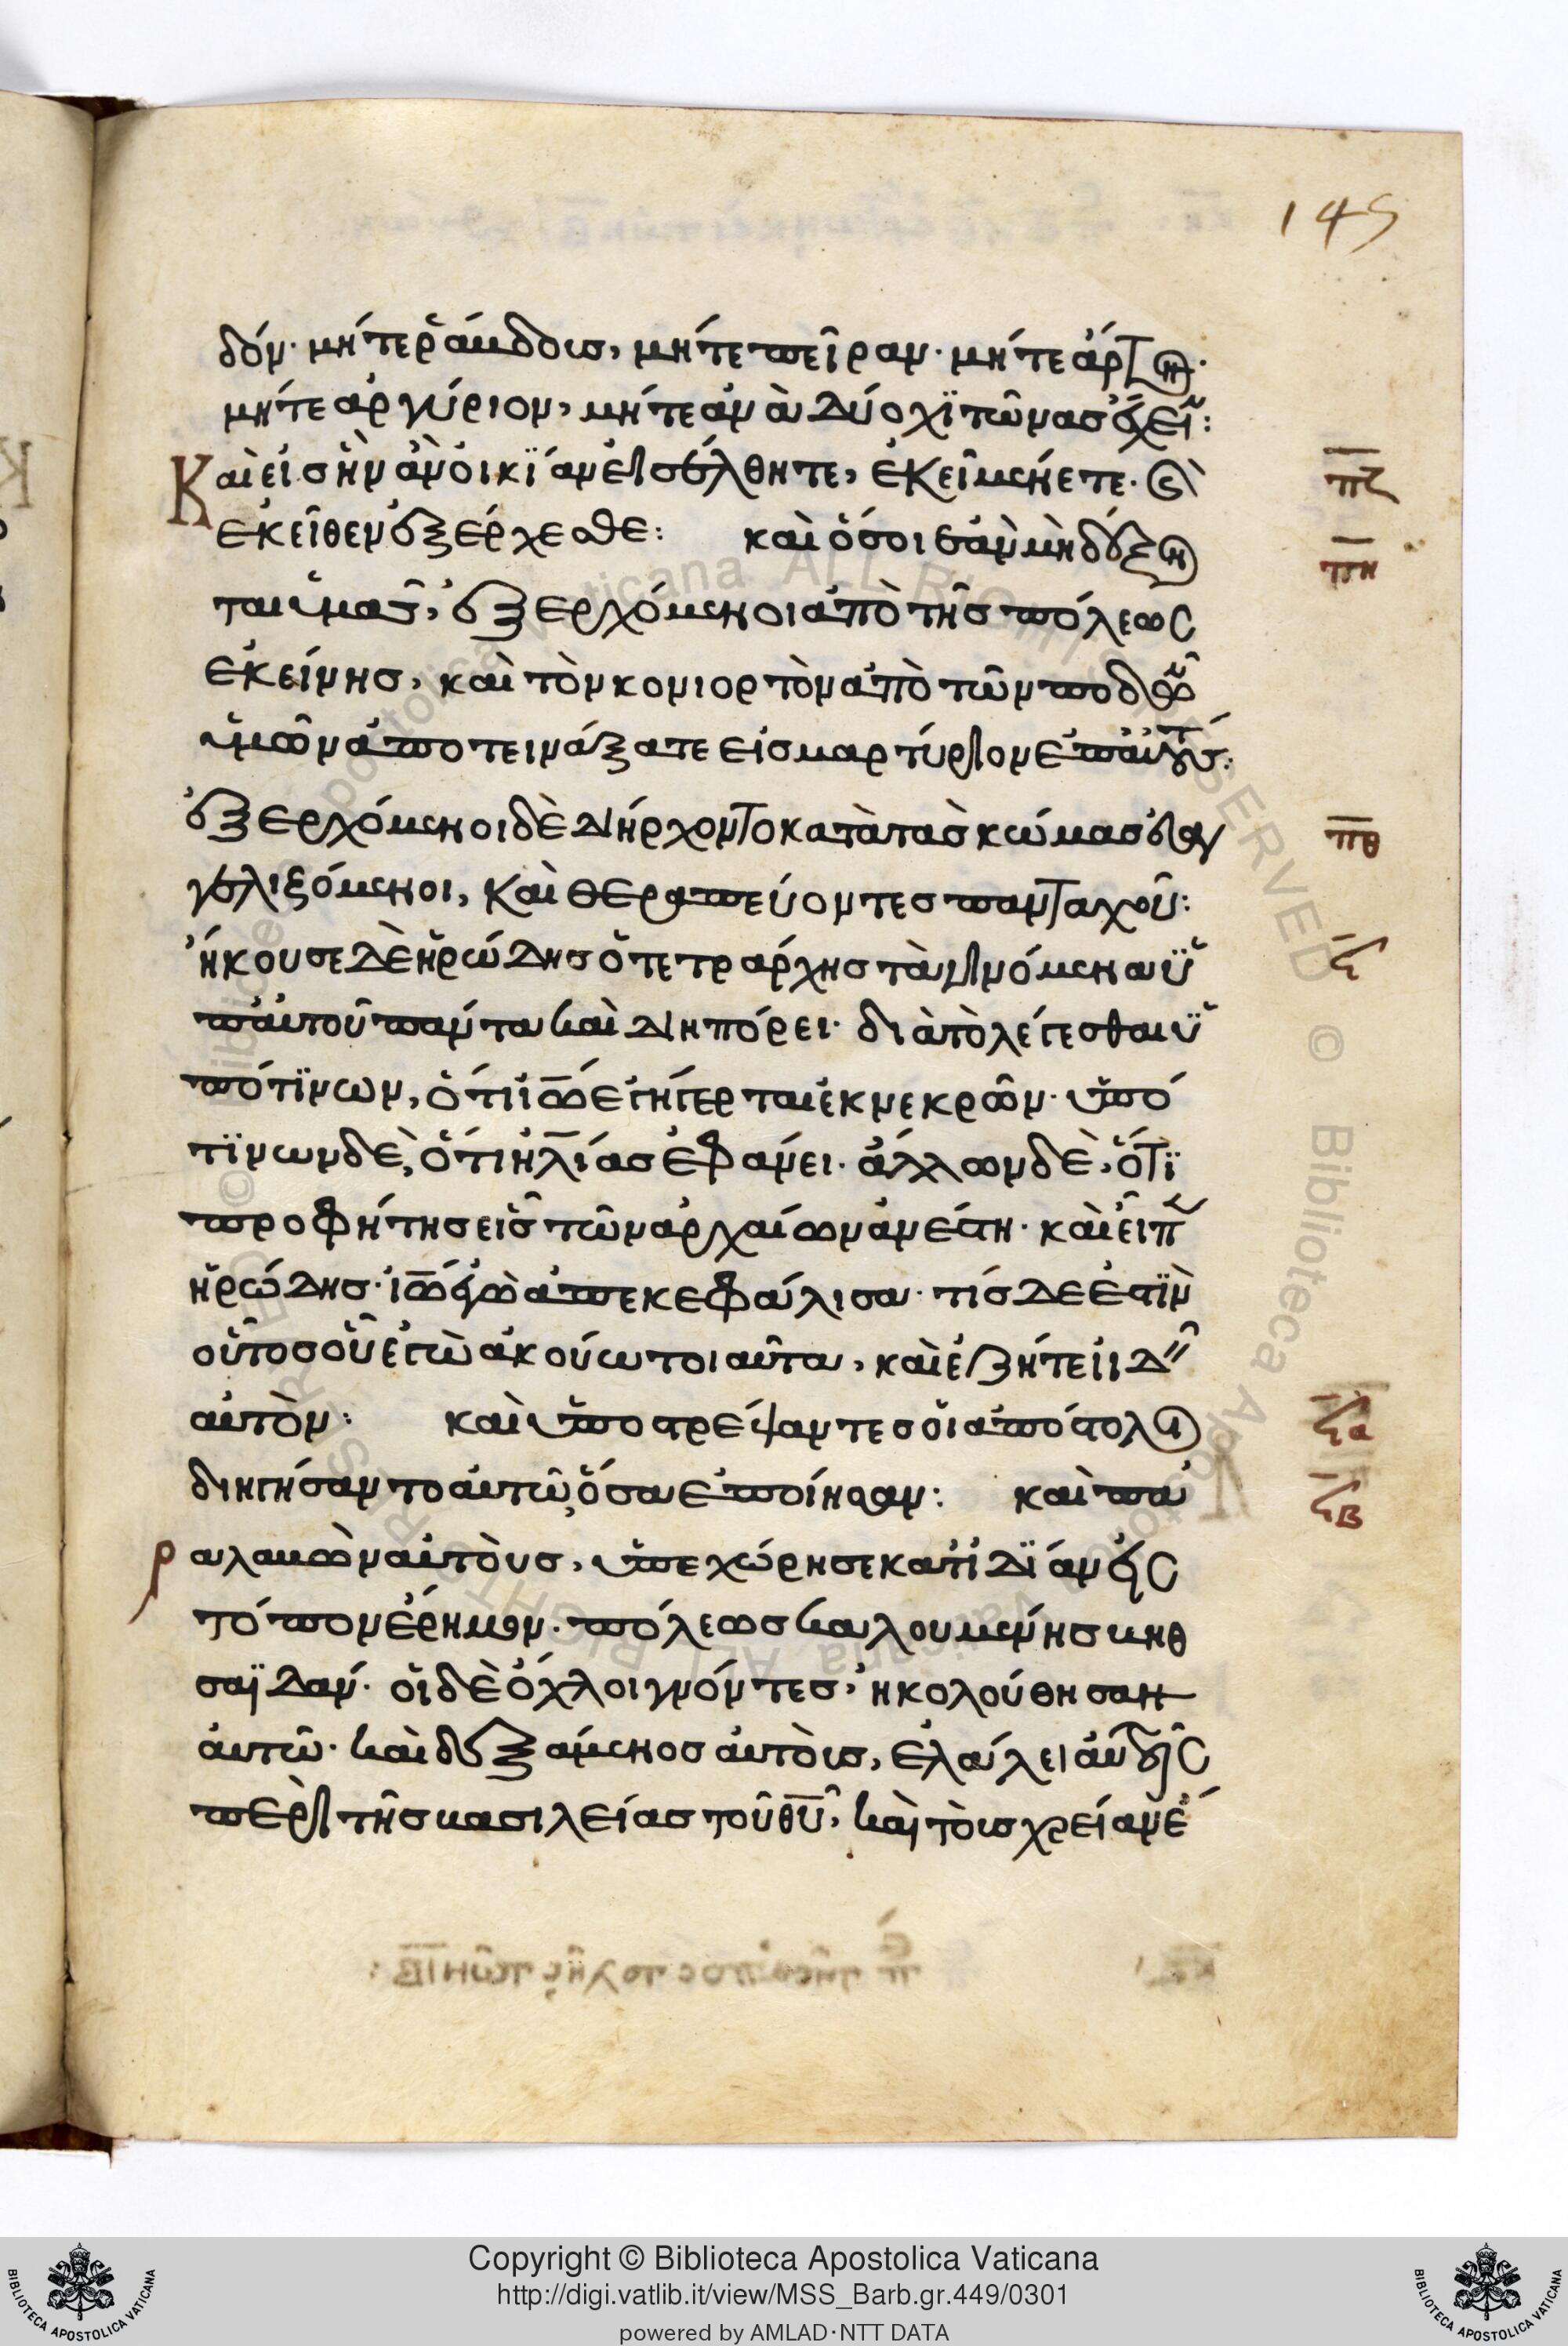 145
δόν· μήτε ῥάβδους, μήτε πεῖραν· μήτε ἄρτον·
μήτε ἀργύριον, μήτε ἀνὰ δύο χϊτῶνας ἔχειν:
Καὶ εἰς ἣν ἂν οἰκϊαν εἰσέλθητε, ἐκεῖ μένετε· καὶ
πζ
ἐκεῖθεν ἐξέρχεσθε: καὶ ὅσοι ἐὰν μὴ δέξων
πη
ται ὑμᾶς, ἐξερχόμενοι ἀπὸ τῆς πόλεως
ἐκείνης, καὶ τὸν κονιορτὸν ἀπὸ τῶν ποδῶν
ὑμῶν ἀποτεινάξατε εἰς μαρτύριον ἐπ αὐτούς:
ἐξερχόμενοι δὲ διήρχοντο κατὰ τὰς κώμας εὐαγ
πθ
γελιζόμενοι, καὶ θεραπεύοντες πανταχοῦ:
ἤκουσε δὲ ἡρώδης ὁ τετράρχης τὰ γινόμενα ϋ
ϟ
π αὐτοῦ πάντα καὶ διηπόρει· διὰ τὸ λέγεσθαι ϋ
πό τϊνων, ὅτι ἰω ἐγήγερται ἐκ νεκρῶν· ὑπό
τϊνων δὲ, ὅτι ἠλίας ἐφάνει· ἄλλων δὲ, ὅτϊ
προφήτης εἷς τῶν ἀρχαίων ἀνέστη· καὶ εἶπεν
ἡρώδης· ἰω ἐγὼ ἀπεκεφάλισα· τίς δε ἐστϊν
οὗτος οὗ ἐγὼ ἀκούω τοιαῦτα, καὶ ἐζήτει ἰδεῖν
αὐτὸν: καὶ ὑποστρέψαντες οἱ ἀπόστολοι
ϟα
διηγήσαντο αὐτῶ, ὅσα ἐποίησαν: καὶ πα
ϟβ
ραλαβὼν αὐτοὺς, ὑπεχώρησε κατ ἰδϊαν εἰς
τόπον ἔρημον· πόλεως καλουμένης βηθ
σαϊδάν· οἱ δὲ ὄχλοι γνόντες, ἠκολούθησαν
αὐτῶ· καὶ δεξάμενος αὐτοὺς, ἐλάλει αὐτοῖς
περὶ τῆς βασιλείας τοῦ θυ, καὶ τοὺς χρείαν ἔ
Copyright © Biblioteca Apostolica Vaticana
http://digi.vatlib.it/view/MSS_Barb.gr.449/0301
powered by AMLAD·NTT DATA